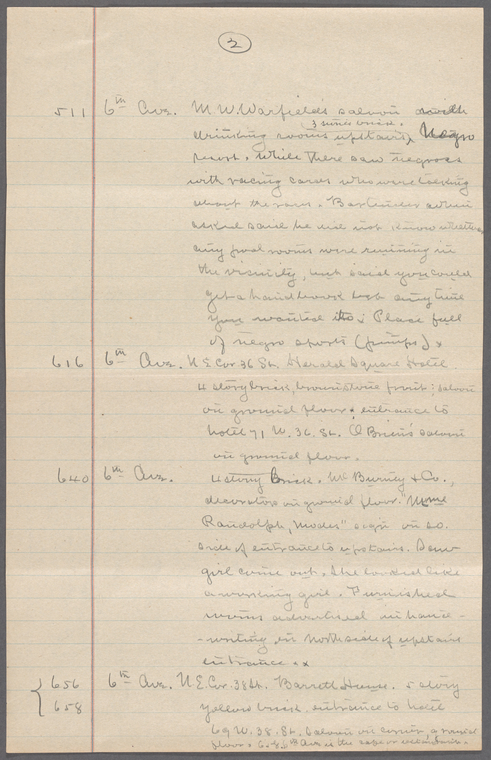 2
511 6th Ave. M.W. Warfields saloon with
(3 stories brick.
drinking rooms upstairs) Negro
resort. While there saw negroes
with racing cards who were talking
about the races. Bartender when
asked said he did not know whether
any pool rooms were running in
the vicinity, but said you could
get a handbook bet any time
you wanted to. Place full
of negro sports (pimps) x
616 6th Ave. N.E. Cor 36 St. Herald Square Hotel
4 story brick, brownstone front: saloon
on ground floor, entrance to
hotel 71 W. 36. St. O'Brien's saloon
on ground floor.
640 6th Ave. 4 story brick. Mc Burney & Co.,
decorators on ground floor. "Mme
Randolph, Modes" sign on so.
side of entrance to upstairs. Saw
girl come out. She looked like
a working girl. Furnished
rooms advertised in hand-
-writing on north side of upstairs
entrance. x
656 6th Ave. N.E. Cor. 38 St. Barrett House. 5 story
658 yellow brick. entrance to hotel
69 W. 38. St. Saloon on corner, ground
floor.